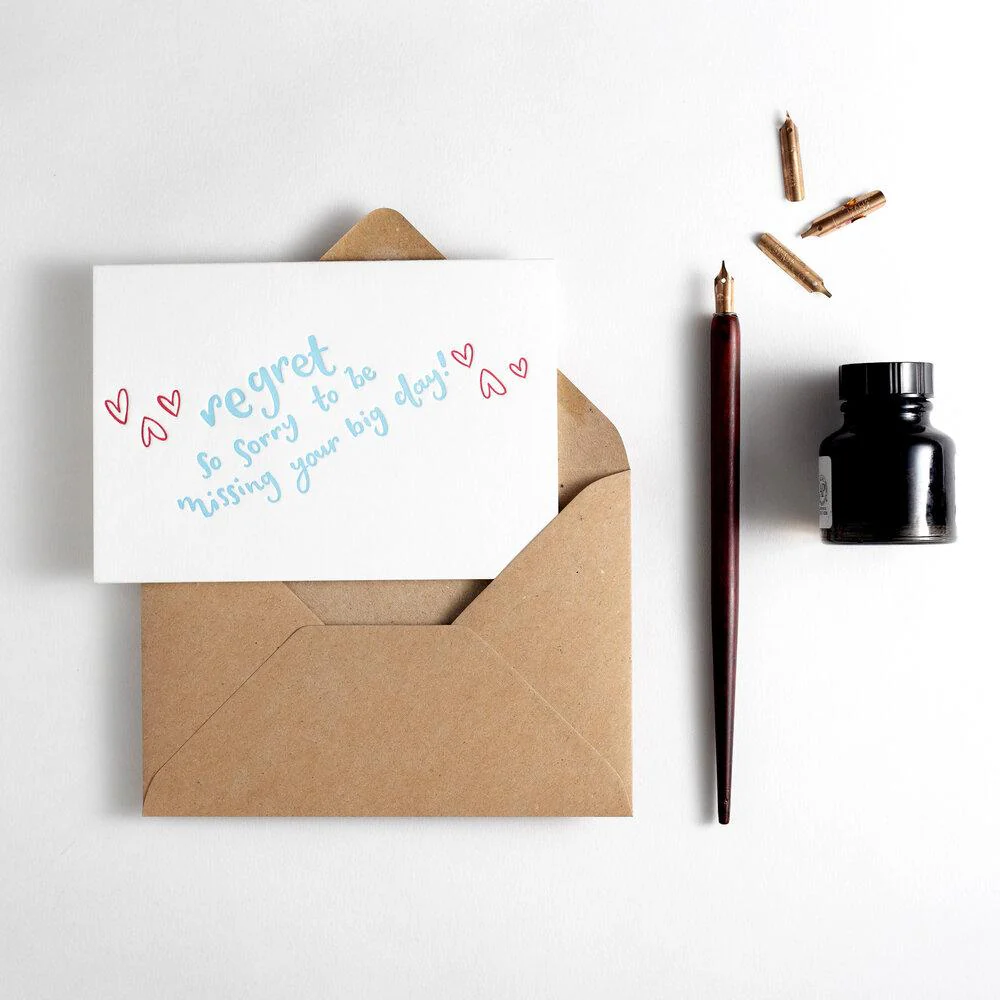 regret
so sorry to be
missing your big day!